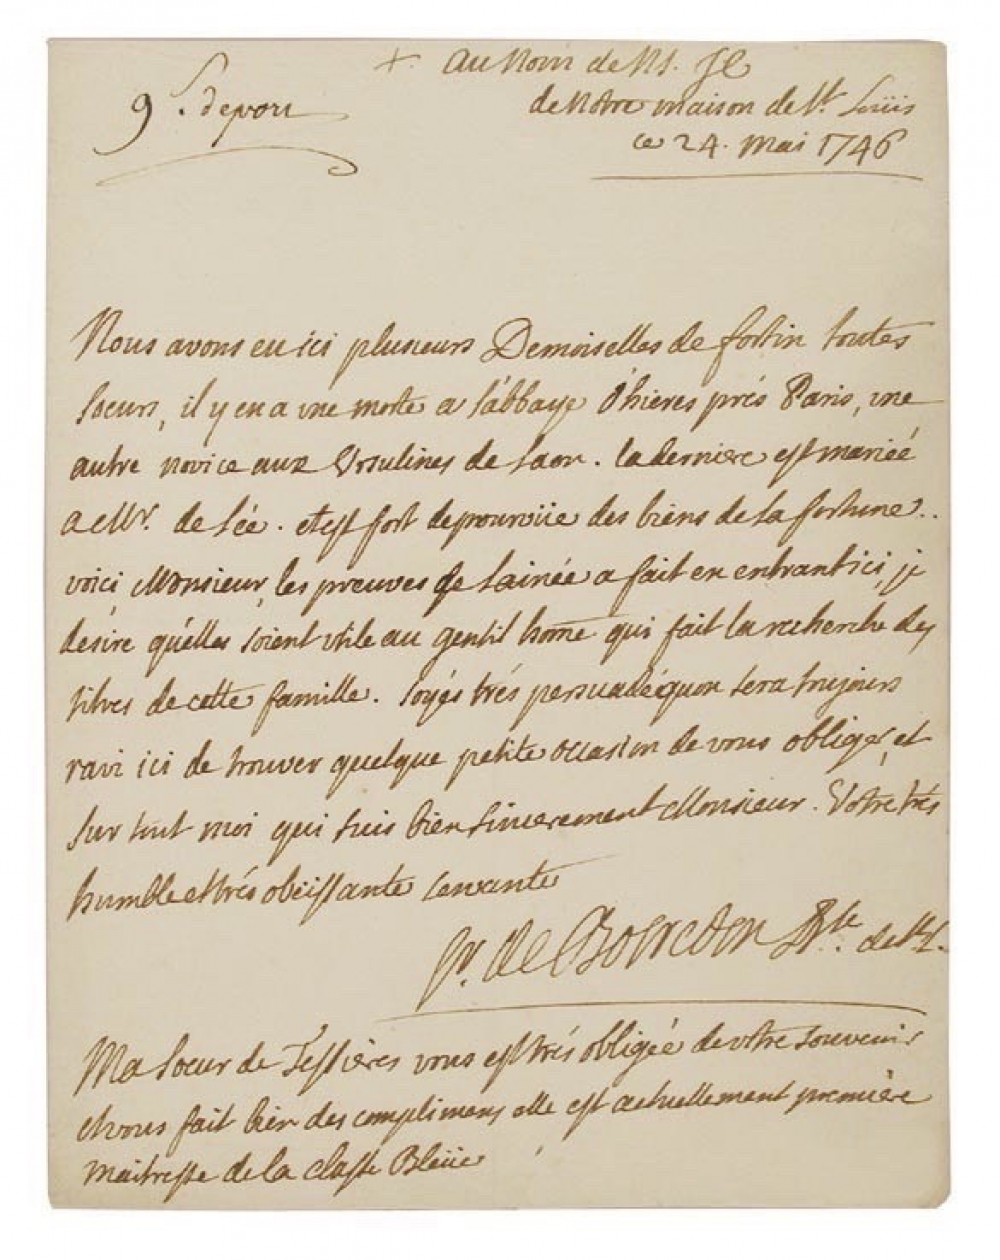 + au Nom de N S. JC
de Notre maison de St Loüis
ce 24. Mai 1746
Nous avons eu ici plusieurs Demoiselles de fortin toutes
soeurs, il y en a une morte a l'abbaye d'hieres prés Paris, une
autre novice aux Ursulines de Laon. la derniere est mariée
a Mr. de Lée. et est fort depourvüe des biens de la fortune.
voici Monsieur, les preuves qe L'ainée a fait en entrant ici, je
desire qu'elles soient utile au gentil home qui fait la recherche des
titres de cette famille. soyés trés persuadé qu'on sera toujours
ravi ici de trouver quelque petite occasion de vous obliger et
sur tout moi qui suis bien sincerement Monsieur. Votre trés
humble et trés obeïssante servante
de Bosredon de St L.
Ma soeur de Tessières vous est trés obligée de votre souvenir
et vous fait bien des complimens elle est actuellement première
maitresse de la classe Bleüe